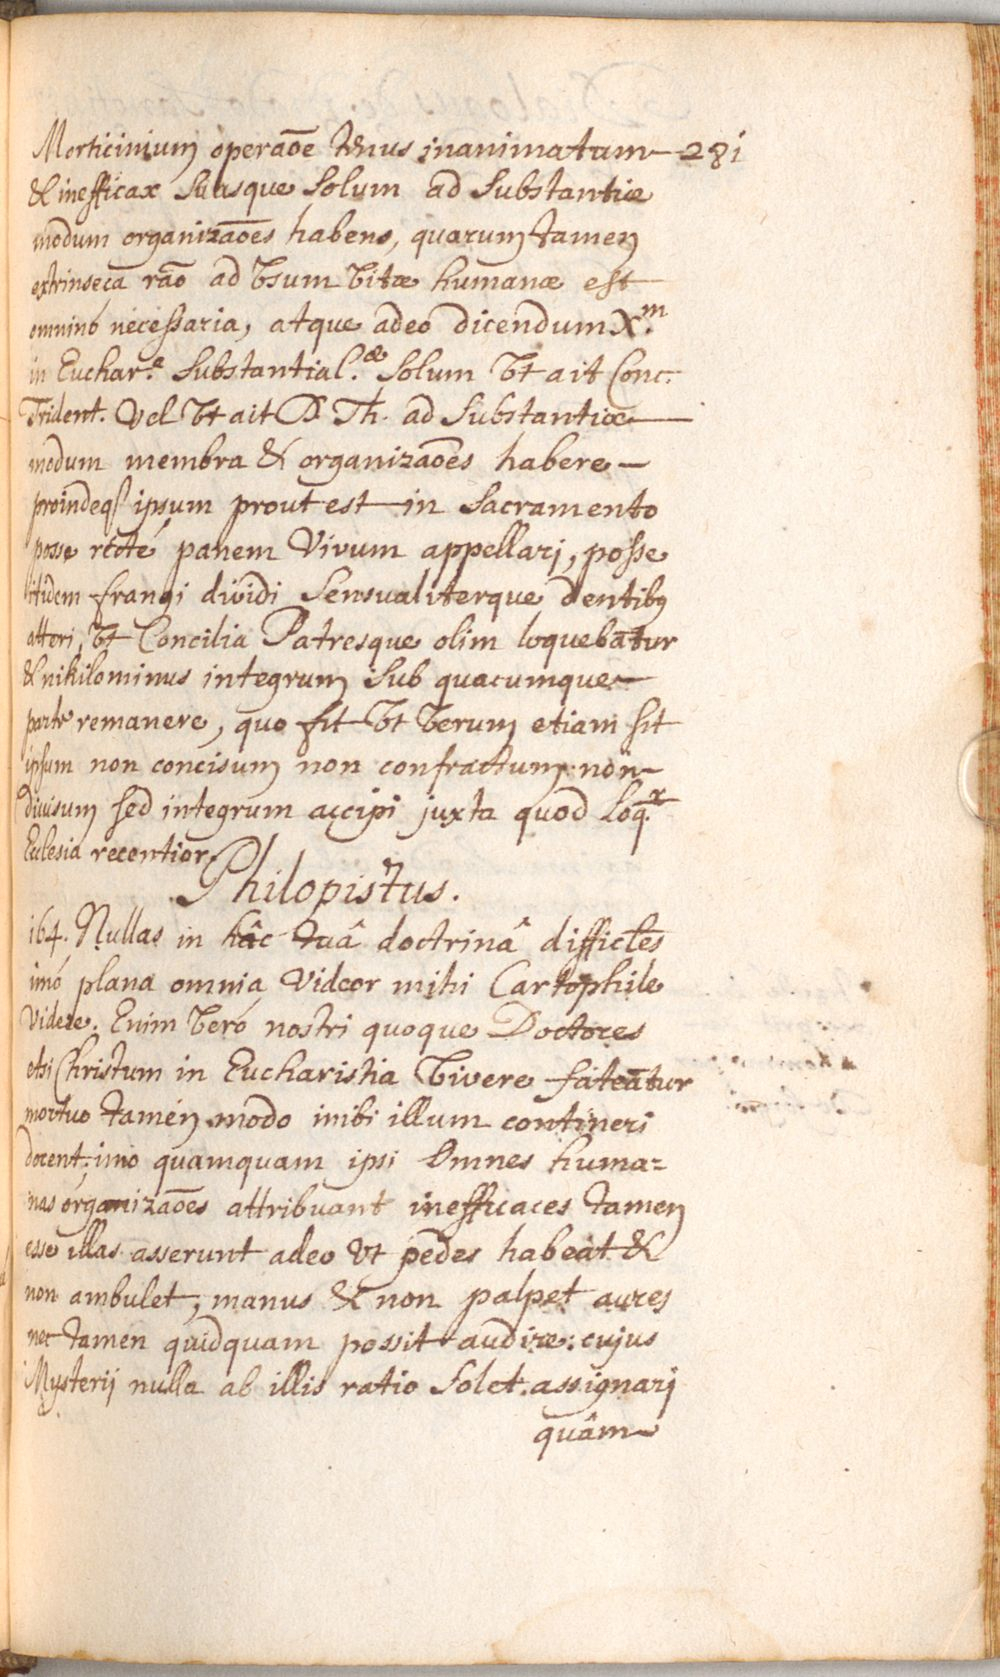 Morticinium operaõe tenus inanimatum 281
& inefficax suasque solum ad substantiæ
modum organizaões habens, quarum tamen
extrinseca rão ad Usum Vitæ humanæ est
omninó necessaria, atque adeo dicendum X.m
in Euchar.a substantial.æ solum Ut ait Conc.
Trident. Vel Ut ait D. Th. ad substantiæ
modum membra & organizaões habere
proindeq3 ipsum prout est in Sacramento
posse rẽté panem Vivum appellari, posse
itidem frangi dividi sensualiterque dentibus
atteri, Ut Concilia Patresque olim loquebãtur
& nihilominus integrum sub quacumque
parte remanere, quo fit Ut Verum etiam sit
ipsum non concisum non confractum non
divisum sed integrum accipi juxta quod Loq.r
Ecclesia recentior.
Philopistus.
164. Nullas in hâc tuâ doctrinâ difficles
imó plana omnia Videor mihi Cartophile
Videre. Enim Veró nostri quoque Doctores
etsi Christum in Eucharistia Vivere fateãtur
mortuo tamen modo inibi illum contineri
docent; imo quamquam ipsi Omnes huma=
nas organizaões attribuant inefficaces tamen
esse illas asserunt adeo Ut pedes habeat &
non ambulet, manus & non palpet aures
nec tamen quidquam possit audire: cujus
Mysterij nulla ab illis ratio Solet assignari
quâm